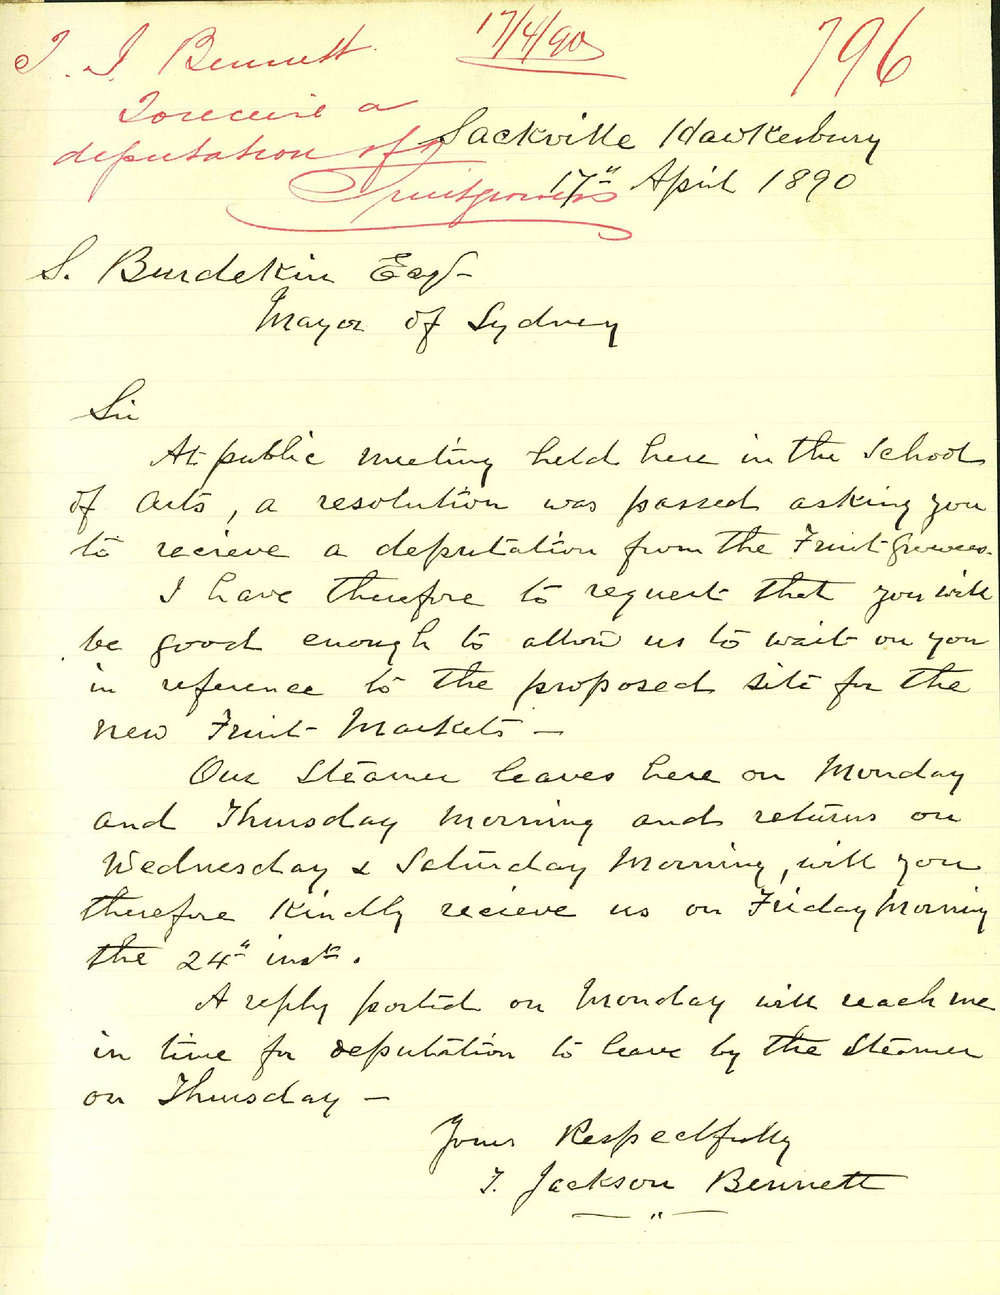 T. J. Bennett
17/4/90
796
To receive a
deputation of
Fruitgrowers
Sackville Hawkesbury
17" April 1890
S. Burdekin Esq
Mayor of Sydney
Sir
At public meeting held here in the School
of Arts, a resolution was passed asking you
to recieve a deputation from the Fruit Growers.
I have therefore to request that you will
be good enough to allow us to wait on you
in reference to the proposed site for the
new Fruit Markets —
Our Steamer leaves here on Monday
and Thursday Morning and returns on
Wednesday & Saturday Morning, will you
therefore Kindly recieve us on Friday Morning
the 24" inst.
A reply posted on Monday will reach me
in time for deputation to leave by the Steamer
on Thursday —
Yours Respectfully
T. Jackson Bennett